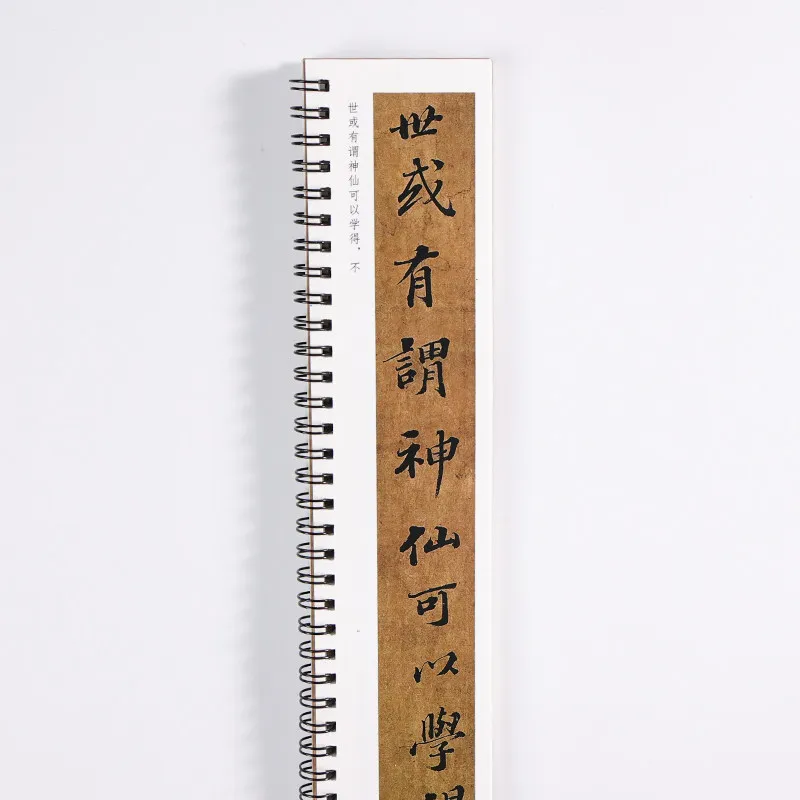 世或有謂神仙可以學
世或有谓神仙可以学得，不